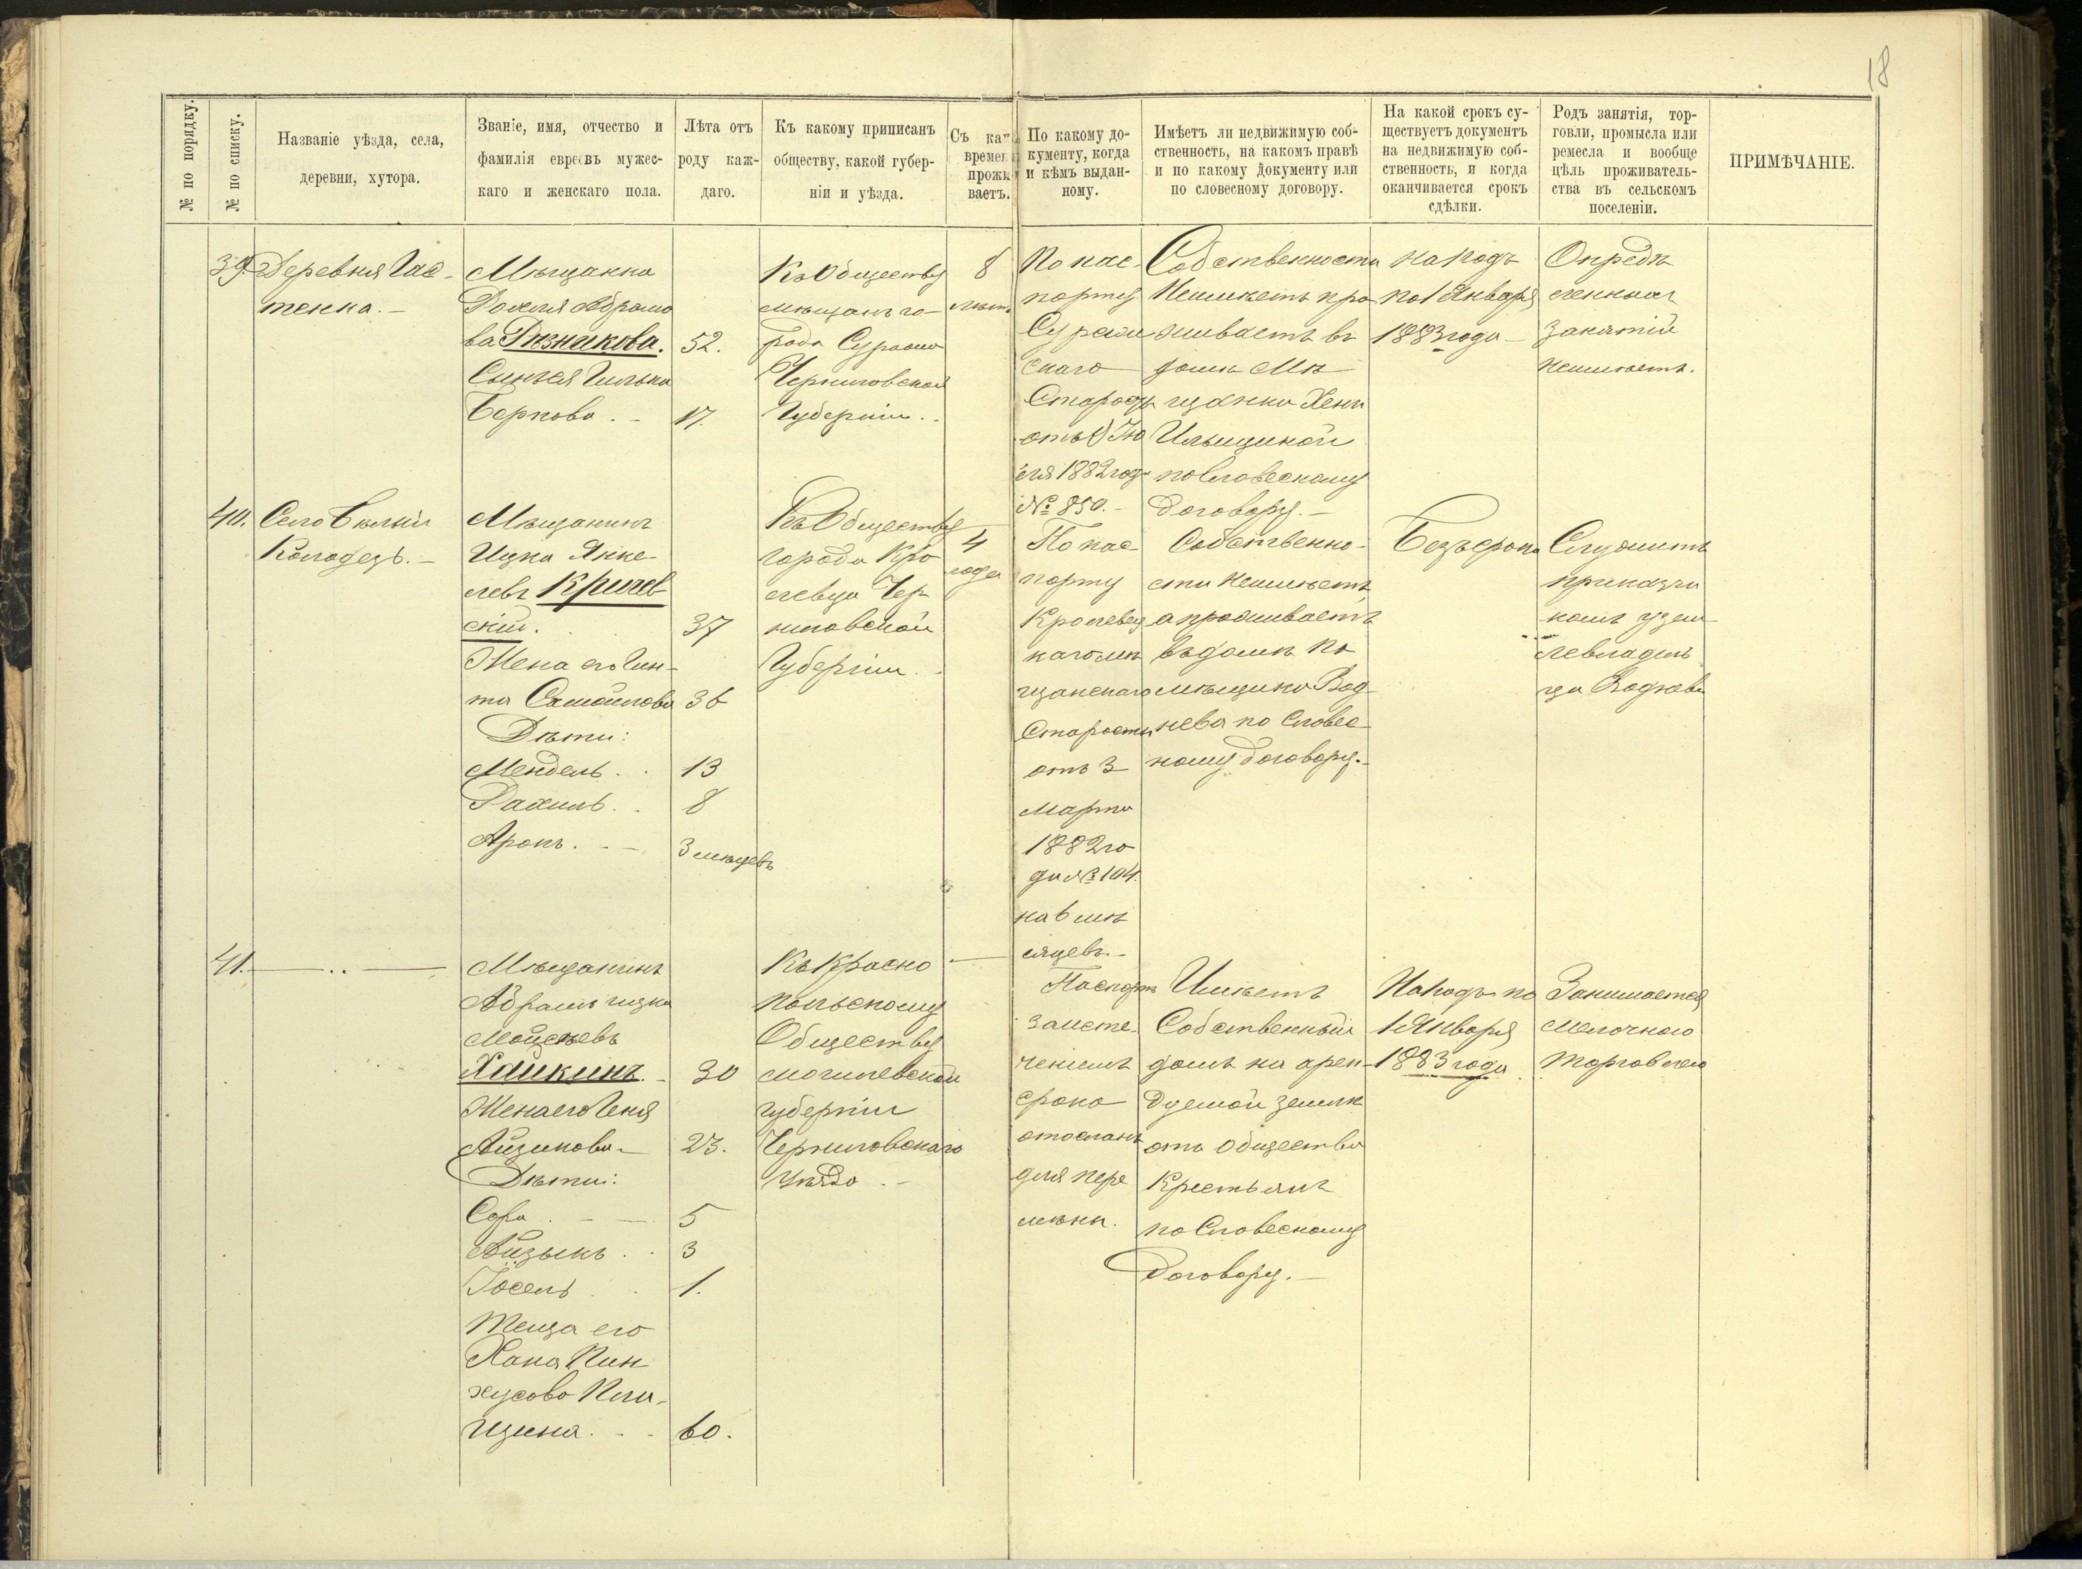 18
№ по порядку.
№ по списку.
Названіе уѣзда, села,
деревни, хутора.
Званіе, имя, отчество и
фамилія евреевъ мужес-
каго и женскаго пола.
Лѣта отъ
роду каж-
даго.
Къ какому приписанъ
обществу, какой губер-
ніи и уѣзда.
Съ как
времен
прожи
ваетъ.
По какому до-
кументу, когда
и кѣмъ выдан-
ному.
Имѣетъ ли недвижимую соб-
ственность, на какомъ правѣ
и по какому документу или
по словесному договору.
На какой срокъ су-
ществуетъ документъ
на недвижимую соб-
ственность, и когда
оканчивается срокъ
сдѣлки.
Родъ занятія, тор-
говли, промысла или
ремесла и вообще
цѣль проживатель-
ства въ сельскомъ
поселеніи.
ПРИМѢЧАНІЕ.
39.
Деревня Гас-
тенка.
Мѣщанка
Рохля Абрамо
ва Рѣзникова.
Сынъ ея Гилька
Берковъ
52.
17.
Къ Обществу
мѣщанъ го-
рода Суража
Черниговской
Губерніи.
8
лѣтъ
По пас-
порту
Сураж
скаго
Старосты
отъ 9 Ію
ля 1882 года
№ 850.
Собственности
Неимѣетъ про
живаетъ въ
домѣ Мѣ
щанки Хени
Ильициной
по Словесному
договору.
На годъ
по 1 Января
1883 года
Опредѣ
ленныхъ
занятій
неимѣетъ.
40.
Село Бѣлый
Колодезь.
Мѣщанинъ
Ицка Янке-
левъ Кричев
скій.
Жена его Гин-
та Самойлова
Дѣти:
Мендель
Рахиль
Аронъ
37
36
13
8
3 мѣсяцевъ
Къ Обществу
города Кро
левца Чер
ниговской
Губерніи
4
года
По пас
порту
Кролевец
каго мѣ
щанскаго
Старосты
отъ 3
Марта
1882 го
да № 104.
на 6 мѣ
сяцевъ.
Собственно-
сти Неимѣетъ,
а проживаетъ
въ домѣ По
мѣщика Вод
нева по Словес-
ному договору.
Безъ срока
Служитъ
приказчи
комъ у зем-
левладѣль
ца Воднева
41.
Мѣщанинъ
Абрамъ Ицка
Мойсѣевъ
Хайкинъ.
Жена его Геня
Айзикова
Дѣти:
Сора
Айзыкъ
Іосель
Теща его
Хана Пин
хусова Пли-
щина
30
23.
5
3
1.
60.
Къ Красно
польскому
Обществу
могилевской
губерніи
Чериковскаго
уѣзда
Паспортъ
за исте
ченіемъ
срока
отосланъ
для пере
мѣны.
Имѣетъ
Собственный
домъ на арен-
дуемой землѣ
отъ общества
Крестьянъ
по Словесному
договору.
На годъ по
1 Января
1883 года
Занимается
мелочною
торговлею